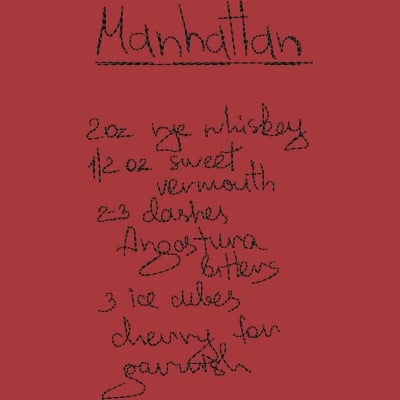 Manhattan
2oz rye whiskey
1/2 oz sweet
vermouth
2-3 dashes
Angostura
bitters
3 ice cubes
cherry for
garnish